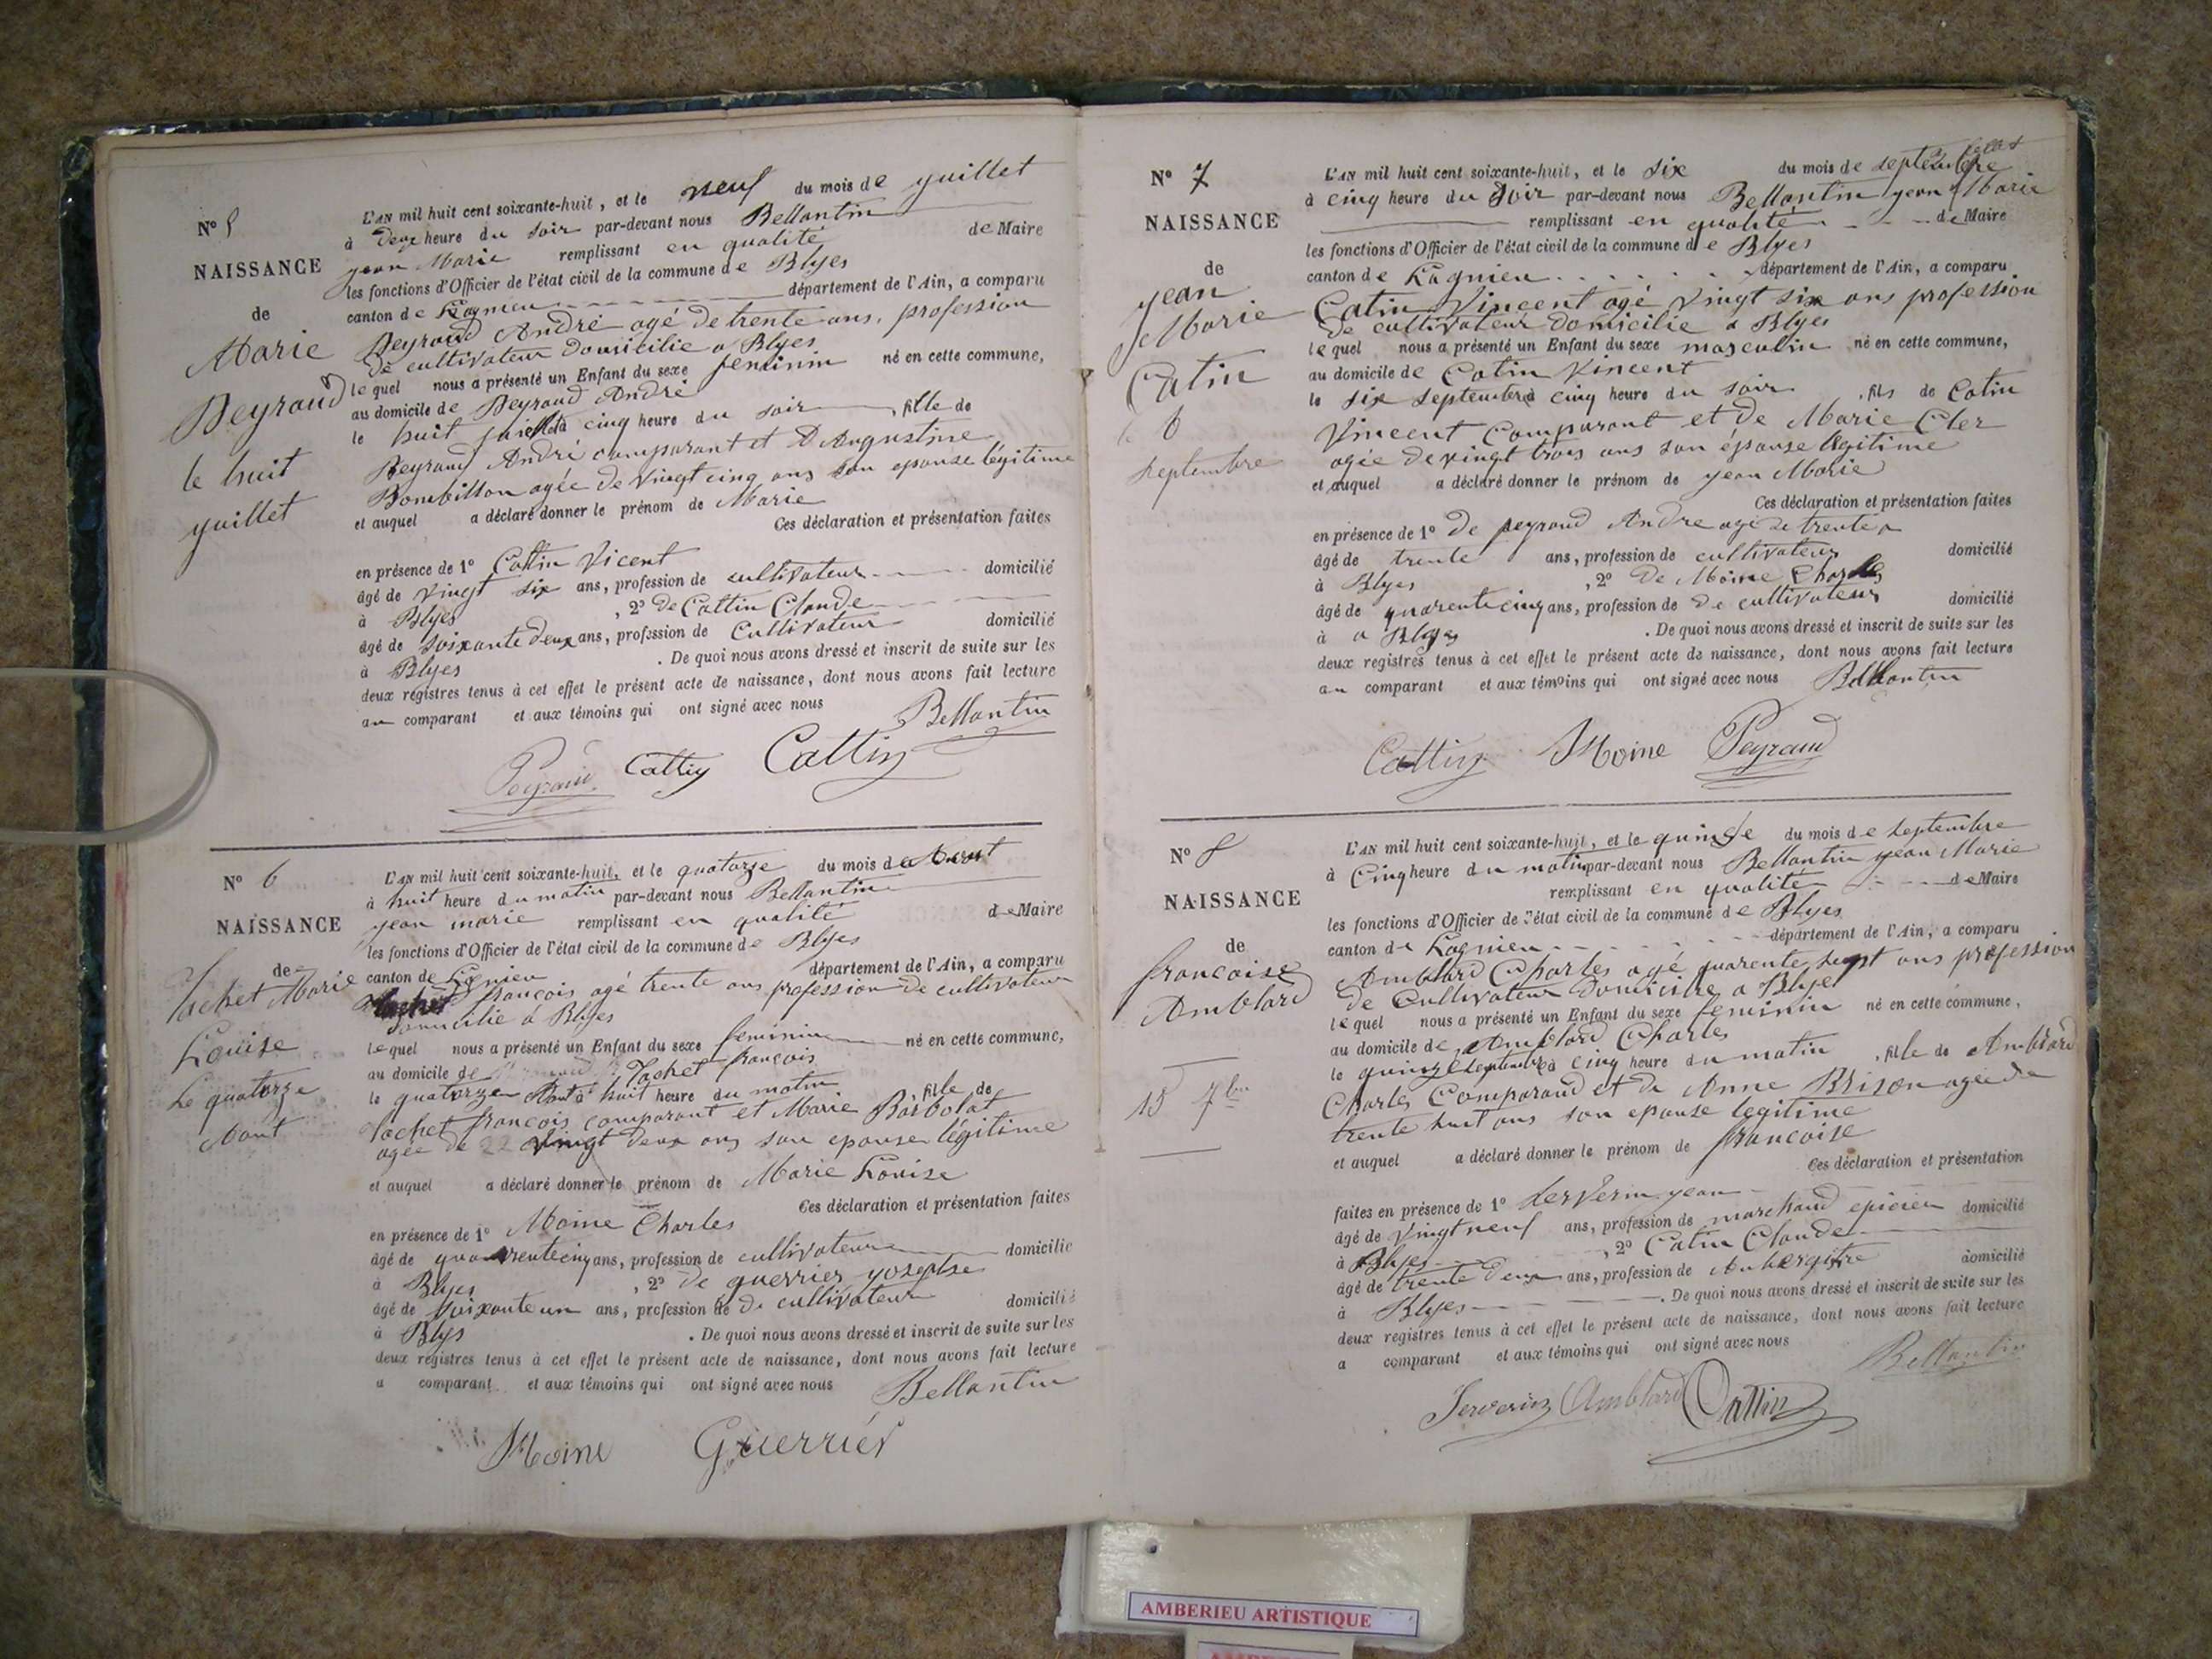 N° 5
NAISSANCE
de
Marie
Peyraud
le huit
yuillet
L'AN mil huit cent soixante-huit, et le neuf du mois de yuillet
à deux heure du soir par-devant nous Bellantin
yean Marie remplissant en qualité de Maire
les fonctions d'Officier de l'état civil de la commune de Blyes
canton de Lagnieu département de l'Ain, a comparu
Peyraud André agé de trente ans, profession
de cultivateur domicilie a Blyes
lequel nous a présenté un Enfant du sexe feminin né en cette commune,
au domicile de Peyraud André
le huit juillet à cinq heure du soir, fille de
Peyraud André comparant et D'Augustine
Bombillon agée de vingt cinq ans son epouse légitime
et auquel a déclaré donner le prénom de Marie
Ces déclaration et présentation faites
en présence de 1° Cattin Vicent
âgé de vingt six ans, profession de cultivateur domicilié
à Blyes, 2° de Cattin Claude
âgé de soixante deux ans, profession de Cultivateur domicilié
à Blyes. De quoi nous avons dressé et inscrit de suite sur les
deux registres tenus à cet effet le présent acte de naissance, dont nous avons fait lecture
au comparant et aux témoins qui ont signé avec nous Bellantin
Peyraud Cattin Cattin
N° 6
NAISSANCE
de
Tachet Marie
Louise
Le quatorze
Aout
L'AN mil huit cent soixante-huit, et le quatorze du mois de Aout
à huit heure du matin par-devant nous Bellantin
yean marie remplissant en qualité de Maire
les fonctions d'Officier de l'état civil de la commune de Blyes
canton de Lagnieu département de l'Ain, a comparu
Tachet françois agé trente ans profession de cultivateur
domicilie à Blyes
lequel nous a présenté un Enfant du sexe feminin né en cette commune,
au domicile de Tachet françois
le quatorze Aout à huit heure du matin, fille de
Tachet françois comparant et Marie Barbolat
agée de 22 vingt deux ans son epouse légitime
et auquel a déclaré donner le prénom de Marie Louise
Ces déclaration et présentation faites
en présence de 1° Moine Charles
âgé de quarentecinq ans, profession de cultivateur domicilié
à Blyes, 2° de guerrier yosephe
âgé de soixante un ans, profession de de cultivateur domicilié
à Blys. De quoi nous avons dressé et inscrit de suite sur les
deux registres tenus à cet effet le présent acte de naissance, dont nous avons fait lecture
a comparant et aux témoins qui ont signé avec nous Bellantin
Moine Guerrier
N° 7
NAISSANCE
de
yean
Marie
Catin
le 6
septembre
L'AN mil huit cent soixante-huit, et le six du mois de septembre
à cinq heure du soir par-devant nous Bellantin yean Marie
remplissant en qualité de Maire
les fonctions d'Officier de l'état civil de la commune de Blyes
canton de Lagnieu département de l'Ain, a comparu
Catin Vincent agé vingt six ans profession
de cultivateur domicilie a Blyes
lequel nous a présenté un Enfant du sexe masculin né en cette commune,
au domicile de Catin Vincent
le six septembre à cinq heure du soir, fils de Catin
Vincent Comparant et de Marie Cler
agée de vingt trois ans son épouse légitime
et auquel a déclaré donner le prénom de yean Marie
Ces déclaration et présentation faites
en présence de 1° de peyraud Andre agé de trente
âgé de trente ans, profession de cultivateur domicilié
à Blyes, 2° de Moine Charles
âgé de quarentecinq ans, profession de de cultivateur domicilié
à a Blyes. De quoi nous avons dressé et inscrit de suite sur les
deux registres tenus à cet effet le présent acte de naissance, dont nous avons fait lecture
au comparant et aux témoins qui ont signé avec nous Bellantin
Cattin Moine Peyraud
N° 8
NAISSANCE
de
francoise
Amblard
15 7bre
L'AN mil huit cent soixante-huit, et le quinze du mois de septembre
à Cinq heure du matin par-devant nous Bellantin yean Marie
remplissant en qualité de Maire
les fonctions d'Officier de l'état civil de la commune de Blyes
canton de Lagnieu département de l'Ain, a comparu
Amblard Charles agé quarente huit ans profession
de Cultivateur domicilie a Blyes
lequel nous a présenté un Enfant du sexe feminin né en cette commune,
au domicile de Amblard Charles
le quinze septembre à cinq heure du matin, fille de Amblard
Charles Comparand et de Anne Brison agée de
trente huit ans son epouse legitime
et auquel a déclaré donner le prénom de francoise
Ces déclaration et présentation
faites en présence de 1° Serverin yean
âgé de vingt neuf ans, profession de marchand epicier domicilié
à Blyes, 2° Catin Claude
âgé de trente deux ans, profession de Aubergiste domicilié
à Blyes. De quoi nous avons dressé et inscrit de suite sur les
deux registres tenus à cet effet le présent acte de naissance, dont nous avons fait lecture
a comparant et aux témoins qui ont signé avec nous Bellantin
Serverin Amblard Cattin
AMBERIEU ARTISTIQUE